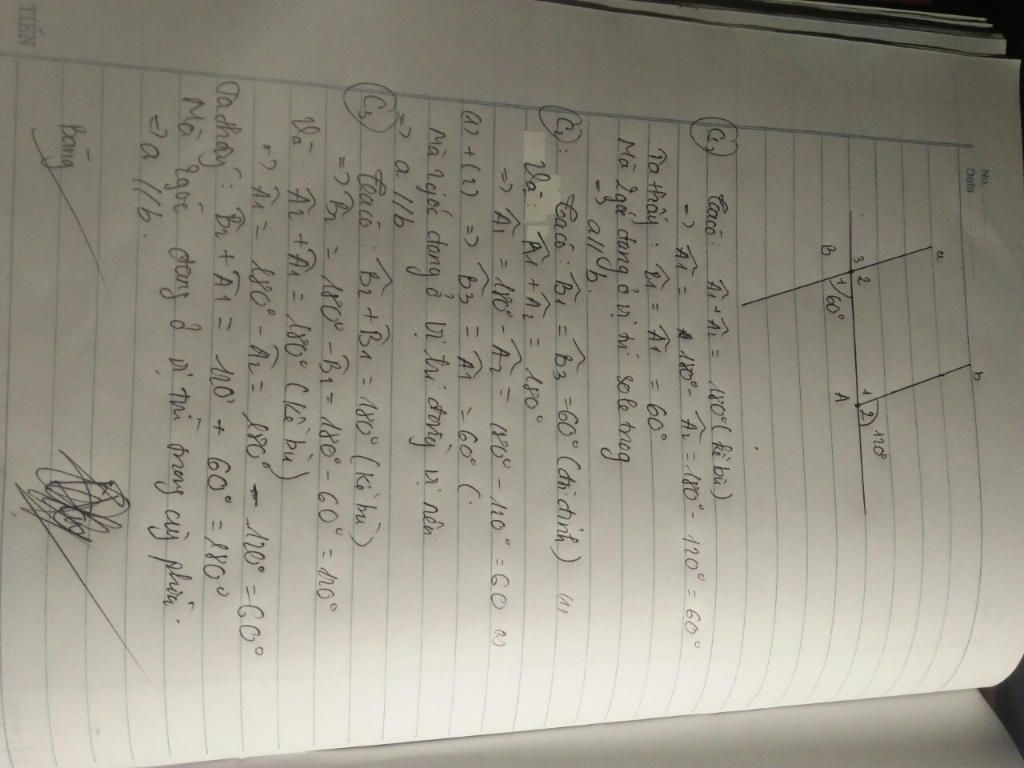 No.
Date
a
b
B
3
2
1
60°
A
1
2
120°
C₁ Ta có: Â1 + Â2 = 180° (kề bù)
=> Â1 = 180° - Â2 = 180° - 120° = 60°
Ta thấy: B̂1 = Â1 = 60°
Mà 2 góc đang ở vị trí sole trong
=> a//b.
C₂: Ta có: B̂1 = B̂3 = 60° (đối đỉnh) (1)
Và: Â1 + Â2 = 180°
=> Â1 = 180° - Â2 = 180° - 120° = 60 (2)
(1) + (2) => B̂3 = Â1 = 60° (
Mà 2 góc đang ở vị trí đồng vị nên
=> a//b
C₃ Ta có: B̂2 + B̂1 = 180° (kề bù)
=> B̂2 = 180° - B̂1 = 180° - 60° = 120°
Và: Â2 + Â1 = 180° (kề bù)
=> Â1 = 180° - Â2 = 180° - 120° = 60°
Ta thấy: B̂2 + Â1 = 120° + 60° = 180°
Mà 2 góc đang ở vị trí trong cùng phía.
=> a//b.
Băng
TIẾN